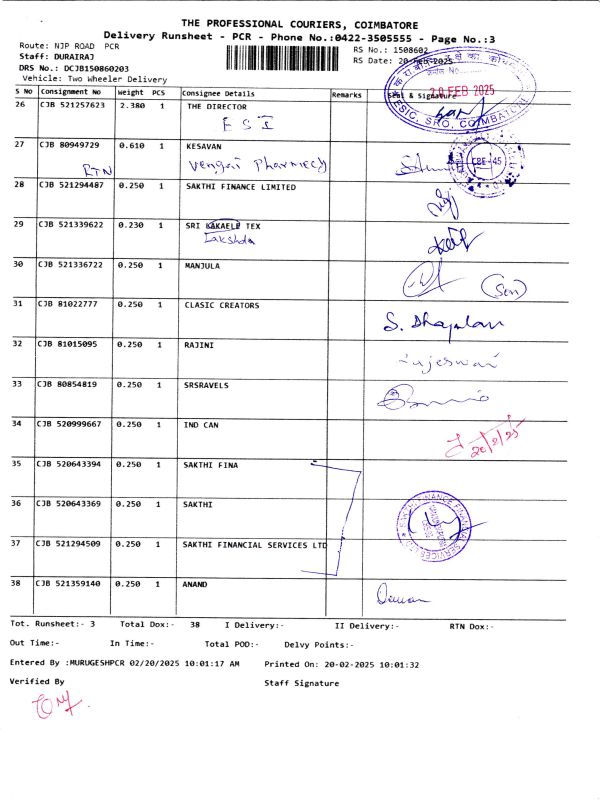 THE PROFESSIONAL COURIERS, COIMBATORE
Delivery Runsheet - PCR - Phone No.:0422-3505555 - Page No.:3
Route: NJP ROAD PCR
RS No.: 1508602
Staff: DURAIRAJ
RS Date: 20-Feb-2025
DRS No.: DCJB150860203
Vehicle: Two Wheeler Delivery
S No Consignment No Weight PCS Consignee Details Remarks Seal & Signature
20 FEB 2025
ESIC, SRO, COIMBATORE
26 CJB 521257623 2.380 1 THE DIRECTOR
ESI
27 CJB 80949729 0.610 1 KESAVAN
RTN Vengai Pharmecy
CBE-45
28 CJB 521294487 0.250 1 SAKTHI FINANCE LIMITED
29 CJB 521339622 0.230 1 SRI KAKAELE TEX
Lakshda
30 CJB 521336722 0.250 1 MANJULA
(Son)
31 CJB 81022777 0.250 1 CLASIC CREATORS
32 CJB 81015095 0.250 1 RAJINI
33 CJB 80854819 0.250 1 SRSRAVELS
34 CJB 520999667 0.250 1 IND CAN
20/2/25
35 CJB 520643394 0.250 1 SAKTHI FINA
36 CJB 520643369 0.250 1 SAKTHI
37 CJB 521294509 0.250 1 SAKTHI FINANCIAL SERVICES LTD
38 CJB 521359140 0.250 1 ANAND
Tot. Runsheet:- 3 Total Dox:- 38 I Delivery:- II Delivery:- RTN Dox:-
Out Time:- In Time:- Total POD:- Delvy Points:-
Entered By :MURUGESHPCR 02/20/2025 10:01:17 AM Printed On: 20-02-2025 10:01:32
Verified By Staff Signature